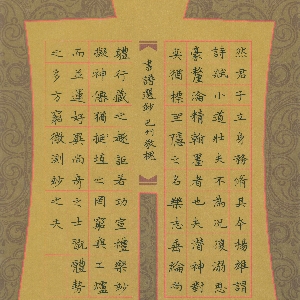 然君子立身務脩其本楊雄謂
詩賦小道壯夫不為況復溺思
豪釐淪精翰墨者也夫潛神對
奕猶標坐隱之名樂志垂綸尚
書譜選鈔
體行藏之趣詎若功宣禮樂妙
擬神僊猶埏埴之罔窮與工爐
而並運好異尚奇之士翫體勢
之多方窮微測妙之夫